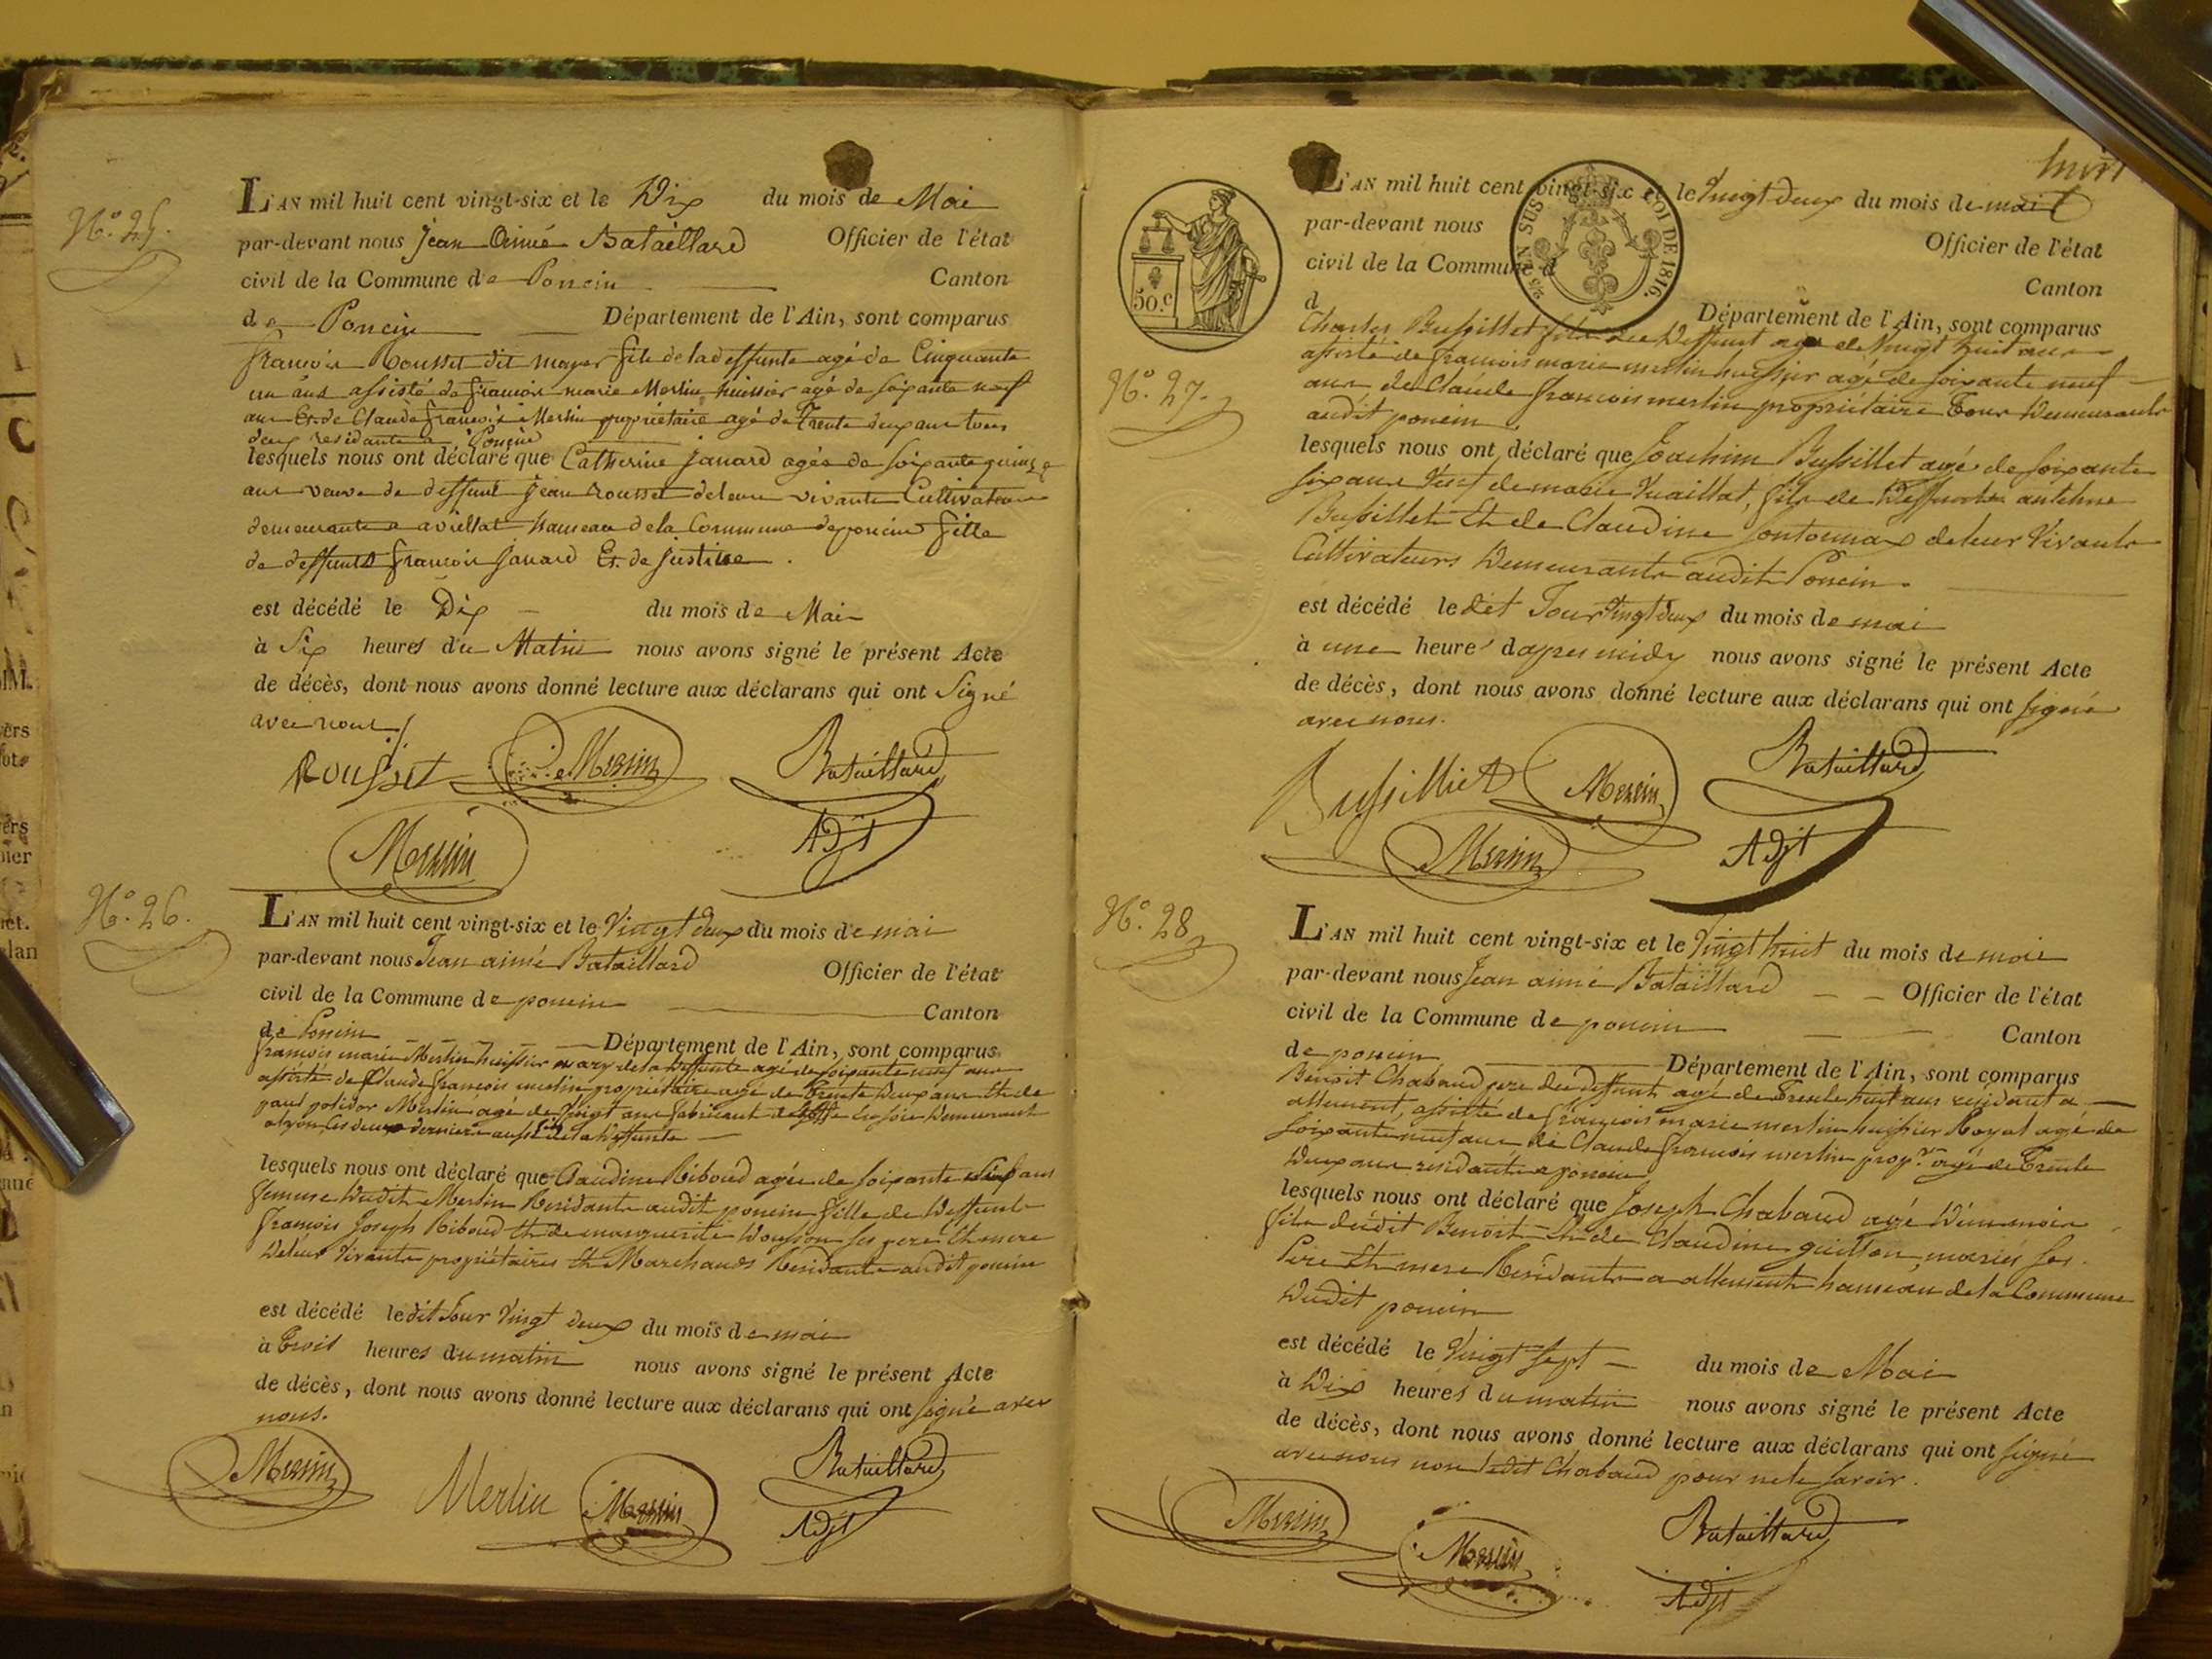 N.o 25.
L'AN mil huit cent vingt-six et le Dix du mois de Mai
par-devant nous Jean Aimé Bataillard Officier de l'état
civil de la Commune de Poncin Canton
de Poncin Département de l'Ain, sont comparus
françois Rousset dit mayer fils de la deffunte agé de Cinquante
un ans assisté de françois marie Merlin huissier agé de soixante neuf
ans Et de Claude françois Merlin propriétaire agé de Trente deux ans tous
deux residants a Poncin
lesquels nous ont déclaré que Catherine Janard agée de soixante quinze
ans veuve de deffunt Jean Rousset de leur vivants Cultivateurs
demeurante a avrillat hameau de la Commune de poncin fille
de deffunts françois Janard Et de Justine
est décédé le Dix du mois de Mai
à Six heures du Matin nous avons signé le présent Acte
de décès, dont nous avons donné lecture aux déclarans qui ont Signé
avec nous
Rousset Merlin Bataillard
Merlin Adjt
N.o 26.
L'AN mil huit cent vingt-six et le Vingt deux du mois de mai
par-devant nous Jean aimé Bataillard Officier de l'état
civil de la Commune de poncin Canton
de Poncin Département de l'Ain, sont comparus
françois marie Merlin huissier mary de la deffunte agé de soixante neuf ans
assisté de Claude françois merlin propriétaire agé de Trente deux ans Et de
paul polidor Merlin agé de Vingt ans fabricant en soie demeurant
a lyon, les deux derniers aussi de la deffunte
lesquels nous ont déclaré que Claudine Riboud agée de soixante ans
femme dudit Merlin Residante audit poncin fille de deffunts
françois Joseph Riboud Et de marguerite ses pere Et mere
de leur vivants propriétaires Et Marchands Residants audit poncin
est décédé ledit Jour Vingt deux du mois de mai
à trois heures du matin nous avons signé le présent Acte
de décès, dont nous avons donné lecture aux déclarans qui ont signé avec
nous.
Merlin Merlin Merlin Bataillard
Adjt
huit
50.c
5/6 EN SUS LOI DE 1816.
N.o 27.
L'AN mil huit cent vingt-six et le Vingt deux du mois de mai
par-devant nous Officier de l'état
civil de la Commune d Canton
d Département de l'Ain, sont comparus
Charles Bussillet fils du deffunt agé de Vingt huit ans
assisté de françois marie merlin huissier agé de soixante neuf
ans de Claude françois merlin propriétaire Tous demeurants
audit poncin
lesquels nous ont déclaré que Joachim Bussillet agé de soixante
six ans Veuf de marie Vuaillat, fils de deffunts antelme
Bussillet Et de Claudine fontonnax de leur Vivants
Cultivateurs demeurants audit Poncin.
est décédé ledit Jour Vingt deux du mois de mai
à une heure d'apres midy nous avons signé le présent Acte
de décès, dont nous avons donné lecture aux déclarans qui ont signé
avec nous.
Bussilliet Merlin Bataillard
Merlin Adjt
N.o 28
L'AN mil huit cent vingt-six et le Vingt huit du mois de mai
par-devant nous Jean aimé Bataillard Officier de l'état
civil de la Commune de poncin Canton
de poncin Département de l'Ain, sont comparus
Benoit Chabaud pere du deffunt agé de Trente huit ans residant a
allement, assisté de françois marie merlin huissier Royal agé de
soixante neuf ans de Claude françois merlin prop.re agé de Trente
deux ans residants a poncin
lesquels nous ont déclaré que Joseph Chabaud agé d'un mois
fils dudit Benoit Et de Claudine guillon, mariés ses
Pere Et mere Residants a allement hameau de la Commune
dudit poncin
est décédé le Vingt sept du mois de Mai
à Dix heures du matin nous avons signé le présent Acte
de décès, dont nous avons donné lecture aux déclarans qui ont signé
avec nous non ledit Chabaud pour ne le savoir.
Merlin Merlin Bataillard
Adjt